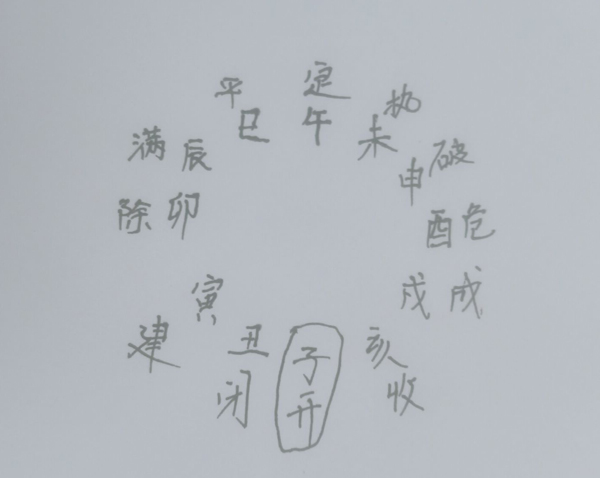 平 定 执
巳 午 未
满 辰 申 破
除 卯 酉 危
寅 戌 成
建 丑 子 亥
闭 开 收